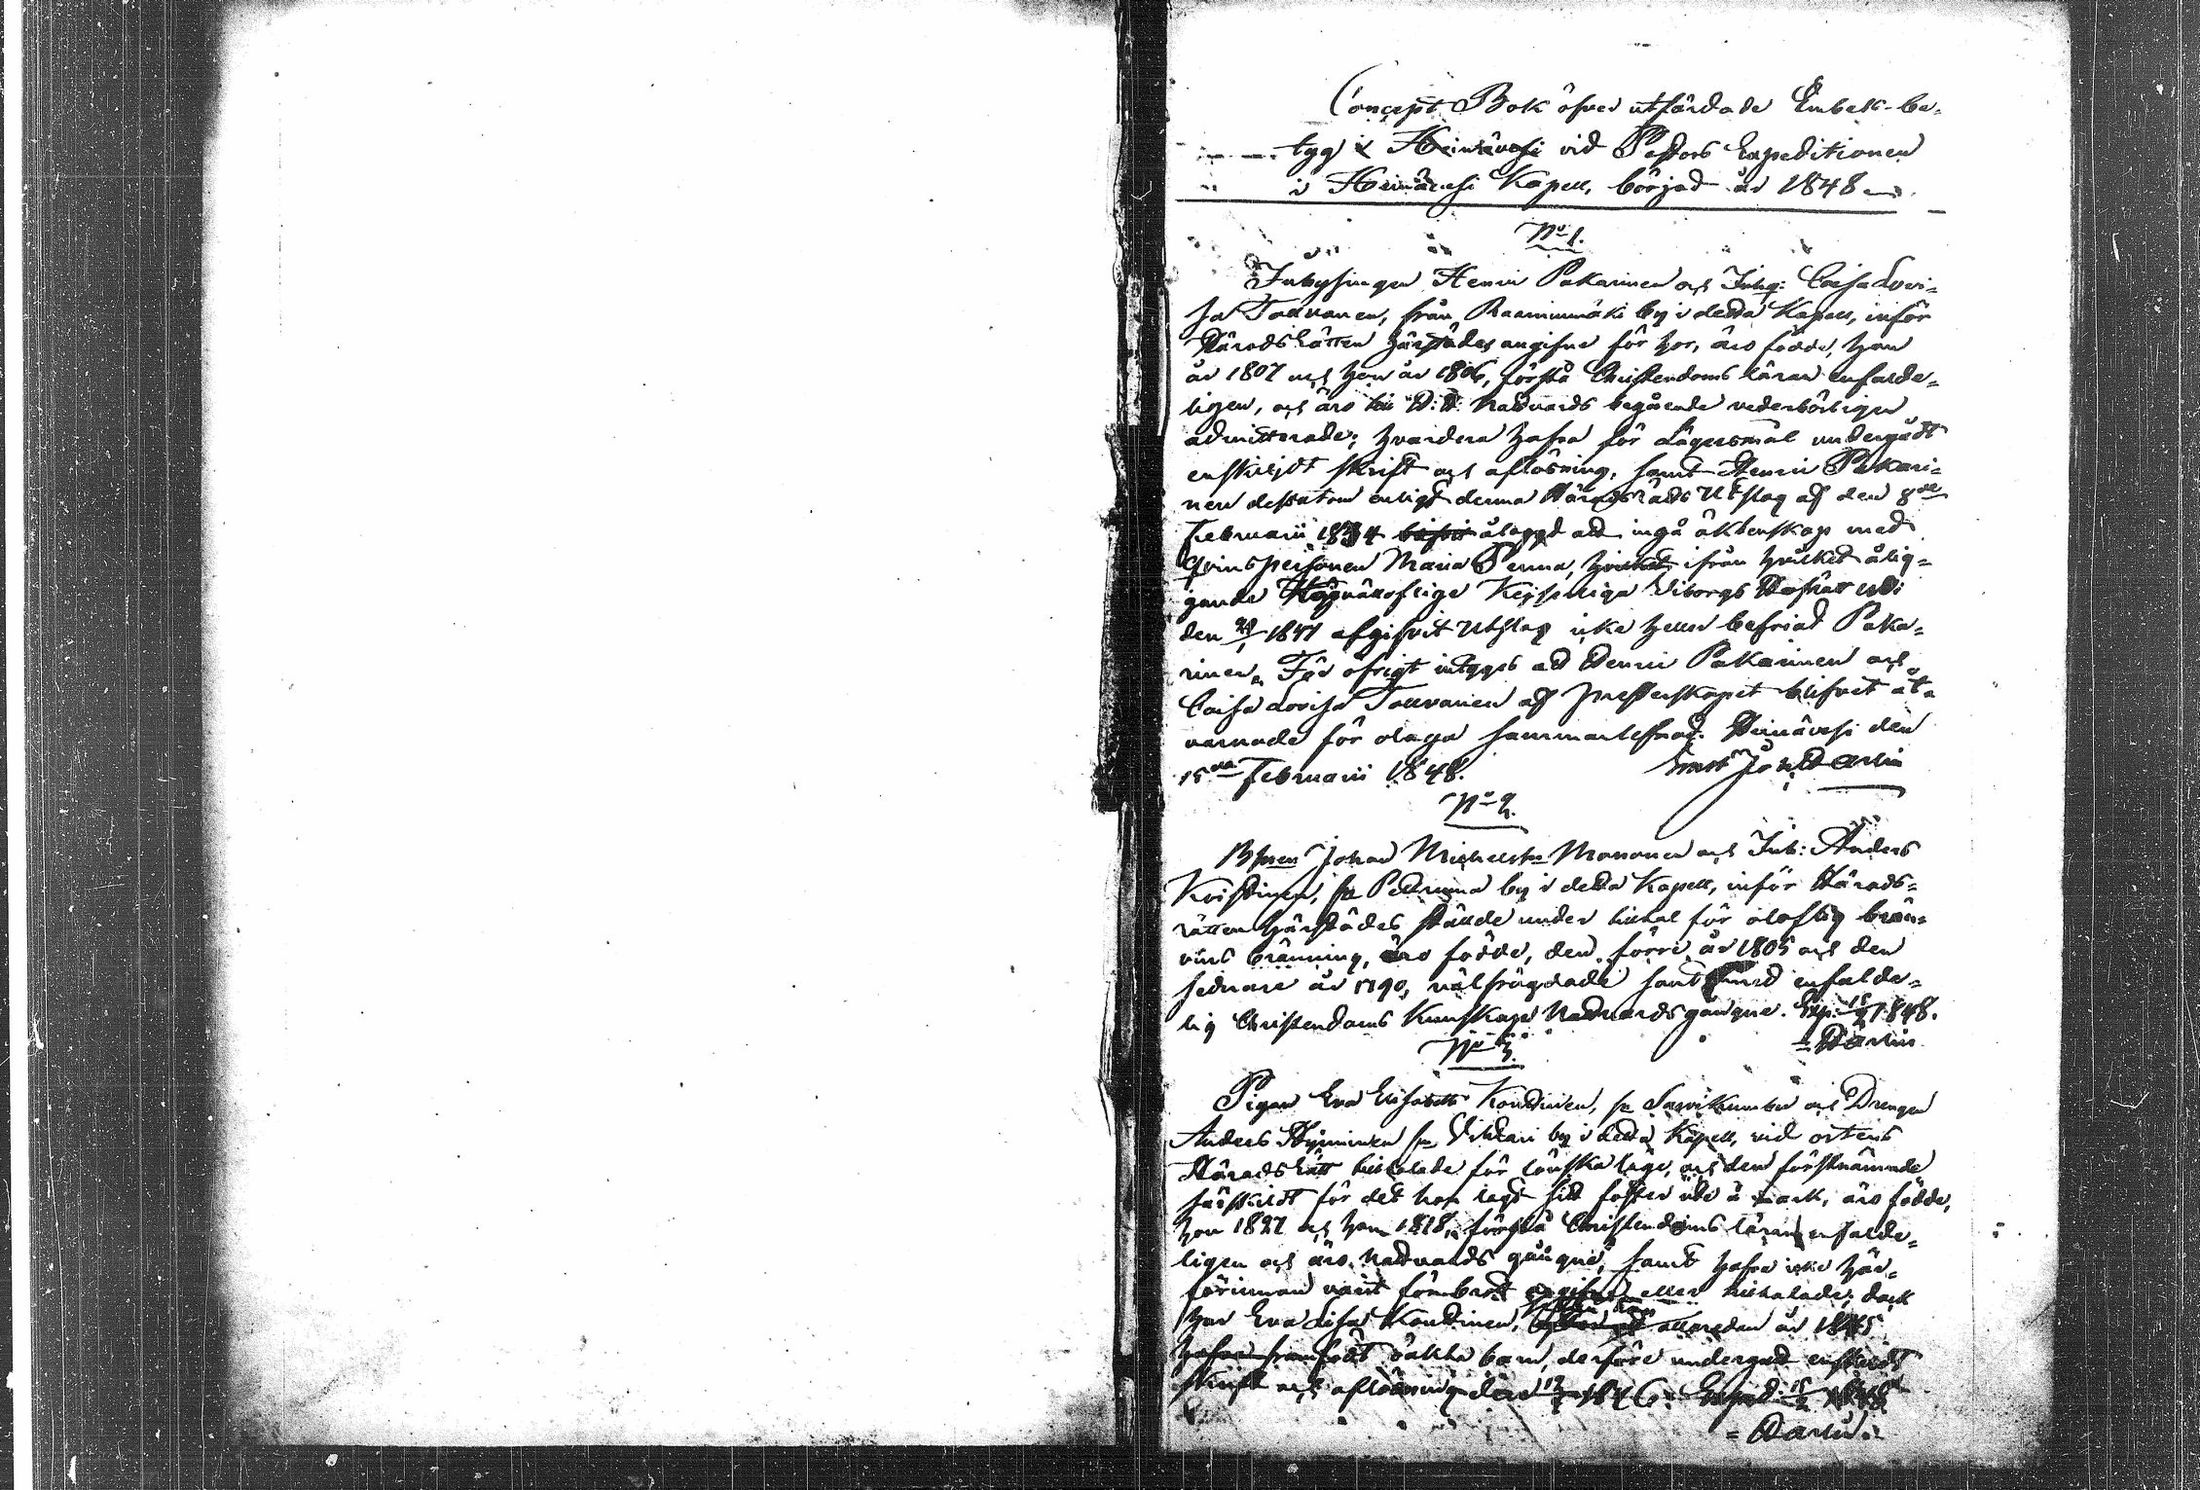 Concept Bok öfver utfärdade Embets-be-
tyg vid Pastors Expeditionen
i Heinävesi Kapell, börjad år 1848
No 1.
Inhysingen Henric Pakarinen och Inhq: Caisa Lovi-
sa Tauvanen, från Raaminmäki by i detta Kapell, inför
HäradsRätten härstädes angifne för hor, äro födde, han
år 1807 och hon år 1806, förstå Christendoms läran enfalde-
ligen, och äro till H: H: Nattvards begående vederbörligen
admitterade; hvardera hafva för Lägersmål undergådt
enskildt skrift och aflösning, samt Henric Pakari-
nen dessutom enligt denna HäradsRätts Utslag af den 8de
Februarii 1834 ålaggd att ingå äktenskap med
Qvinspersonen Maria Penna, ifrån hvilket ålig-
gande Kejserliga Viborgs HofRätt
den 1847 afgifvit Utslag icke heller befriad Paka-
rinen. För öfrigt intygas att Henric Pakarinen och
Caisa Lovisa Tauvanen af Presterskapet blifvit åt-
varnade för olaga sammanlefnad. Heinävesi den
15de Februarii 1848.
No 2.
Johan Michelss: Manonen och Inh: Anders
fr Petruma by i detta Kapell, inför Härads-
rätten härstädes ställde under tilltal för olaflig brän-
vins bränning, äro födde, den förre år 1805 och den
sednare år 1790, välfrägdade samt med enfalde-
lig Christendoms Kunskap Nattvardsgångne. Exp: 15/2 1848.
No 3.
Pigan Eva Elisabeth Kontinen, fr Sarvikumbu och Drengen
Anders Hyvninen fr Vihtari by i detta Kapell, vid ortens
HäradsRätt tilltalade för lönskaläge, och den förstnämnde
särskildt för det hon lagt sitt foster ute å mark, äro födde,
hon 1827 och han 1818, förstå Christendoms läran enfalde-
ligen och äro Nattvards gångne, samt hafva icke här-
förinnan varit för brott angifne eller tilltalade; dock
har Eva Lisa Kontinen, allaredan år 1845
framfödt oäkta barn, derföre undergått enskildt
skrift och aflösning den 1846. Exped: 15/2 1848